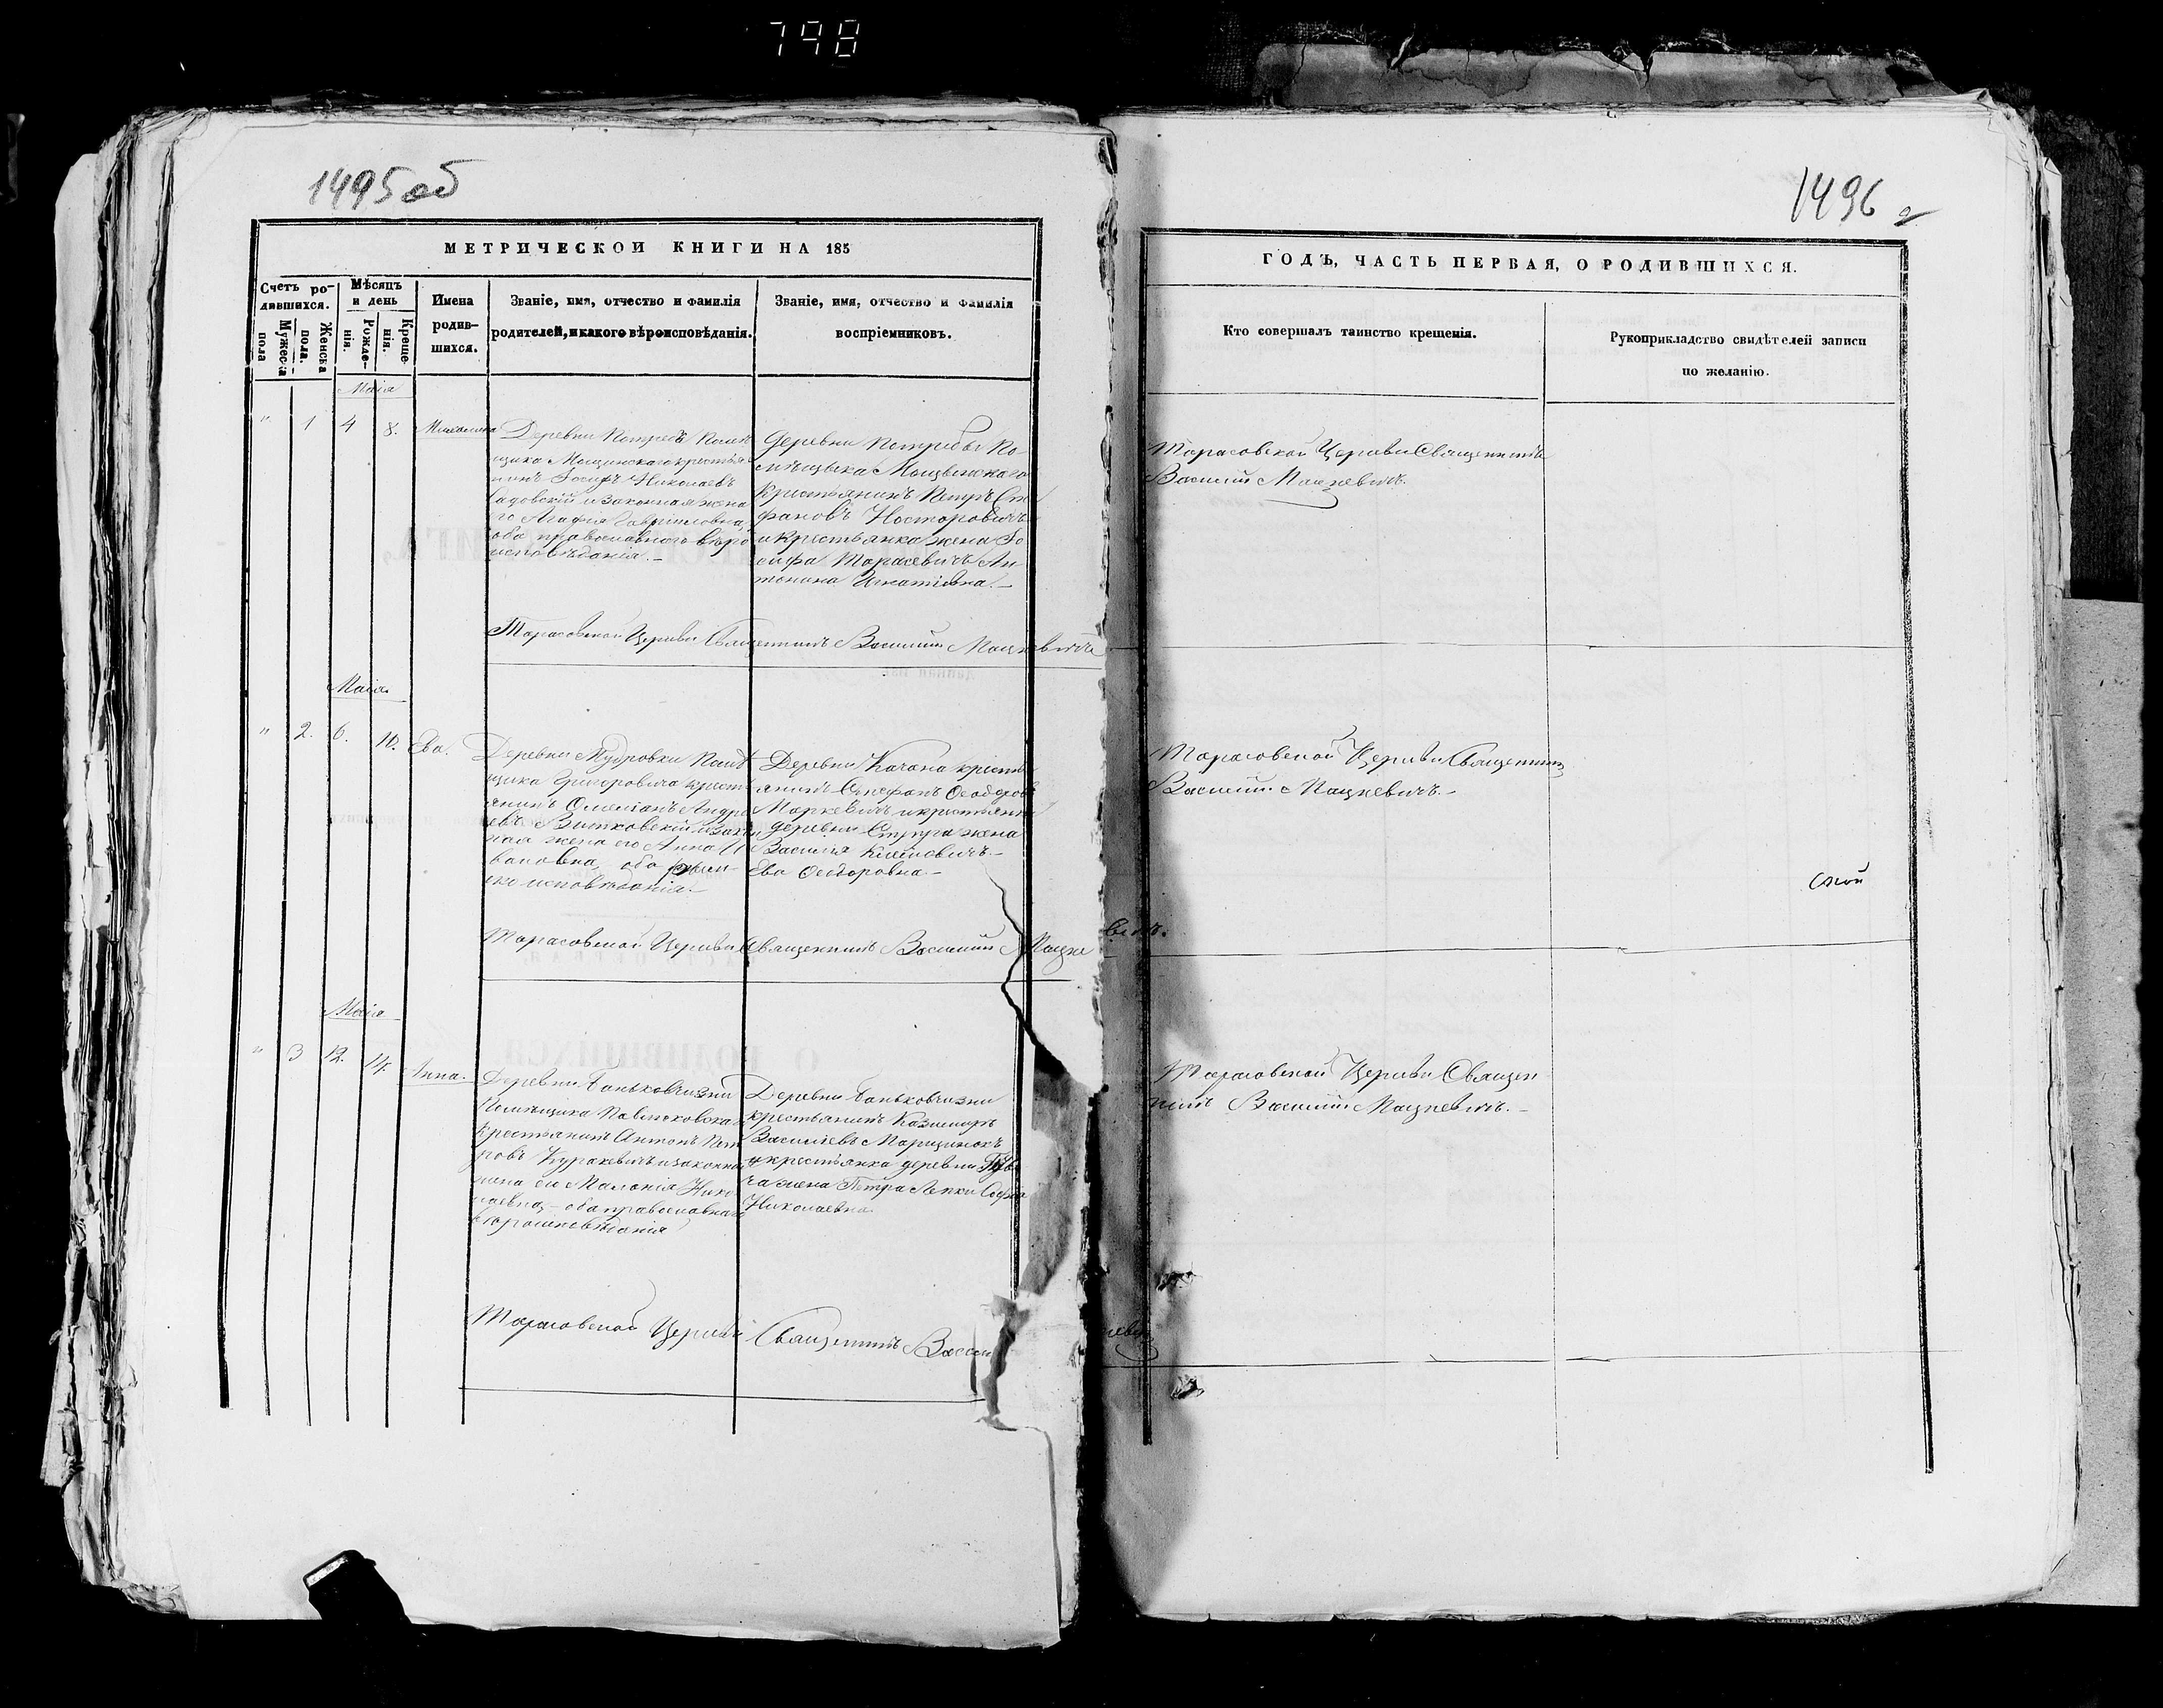 798
1495 об
МЕТРИЧЕСКОЙ КНИГИ НА 185
Счетъ ро-
дившихся.
Мужеска
пола
Женска
пола.
Мѣсяцъ
и день
Рожде-
нія.
Креще-
нія.
Имена
родив-
шихся.
Званіе, имя, отчество и фамилія
родителей, и какого вѣроисповѣданія.
Званіе, имя, отчество и фамилія
воспріемниковъ.
Маія
" 1 4 8.
Деревни
крестья-
нинъ Іосифъ Николаевъ
и законная жена
его Агафія Гавріиловна,
оба православнаго вѣро
исповѣданія.-
Деревни По-
мѣщика
крестьянинъ Петръ Сте
фановъ Несторовичъ
и крестьянка жена Іо
сифа Тарасевичъ Ан-
тонина Игнатіевна.-
Тарасовской Церкви Священникъ Василий Мацкевичъ
Маія.
" 2. 6. 10. Ева.
Деревни Мудровки Помѣ
щика Григоровича крестья
янинъ Омеліанъ Андре
евъ Витковскій и закон
ная жена его Анна И
вановна, оба
исповѣданія.-
Деревни Качана кресть
янинъ Стефанъ Ѳеодоров
Маркевичъ и крестьянка
деревни Струга жена
Василія
Ева Ѳеодоровна.-
Тарасовской Церкви Священникъ Василий Мацке
Маія
" 3 12. 14. Анна.
Деревни Баньковчизни
Помѣщика
Крестьянинъ Антонъ Пет
ровъ Куракевичъ и законная
жена его Маланія Нико
лаевна, - оба православнаго
вѣроисповѣданія
Деревни Баньковчизни
крестьянинъ Казимиръ
Василіевъ Марцинокъ
и крестьянка деревни
жена Петра Лапки Софія
Николаевна
Тарасовской Церкви Священникъ Васил
1496
ГОДЪ, ЧАСТЬ ПЕРВАЯ, О РОДИВШИХСЯ.
Кто совершалъ таинство крещенія.
Рукоприкладство свидѣтелей записи
по желанію.
Тарасовской Церкви Священникъ
Василий Мацкевичъ.
Тарасовской Церкви Священникъ
Василий Мацкевичъ.-
ской
вичъ.
Тарасовской Церкви Священ
никъ Василий Мацкевичъ.-